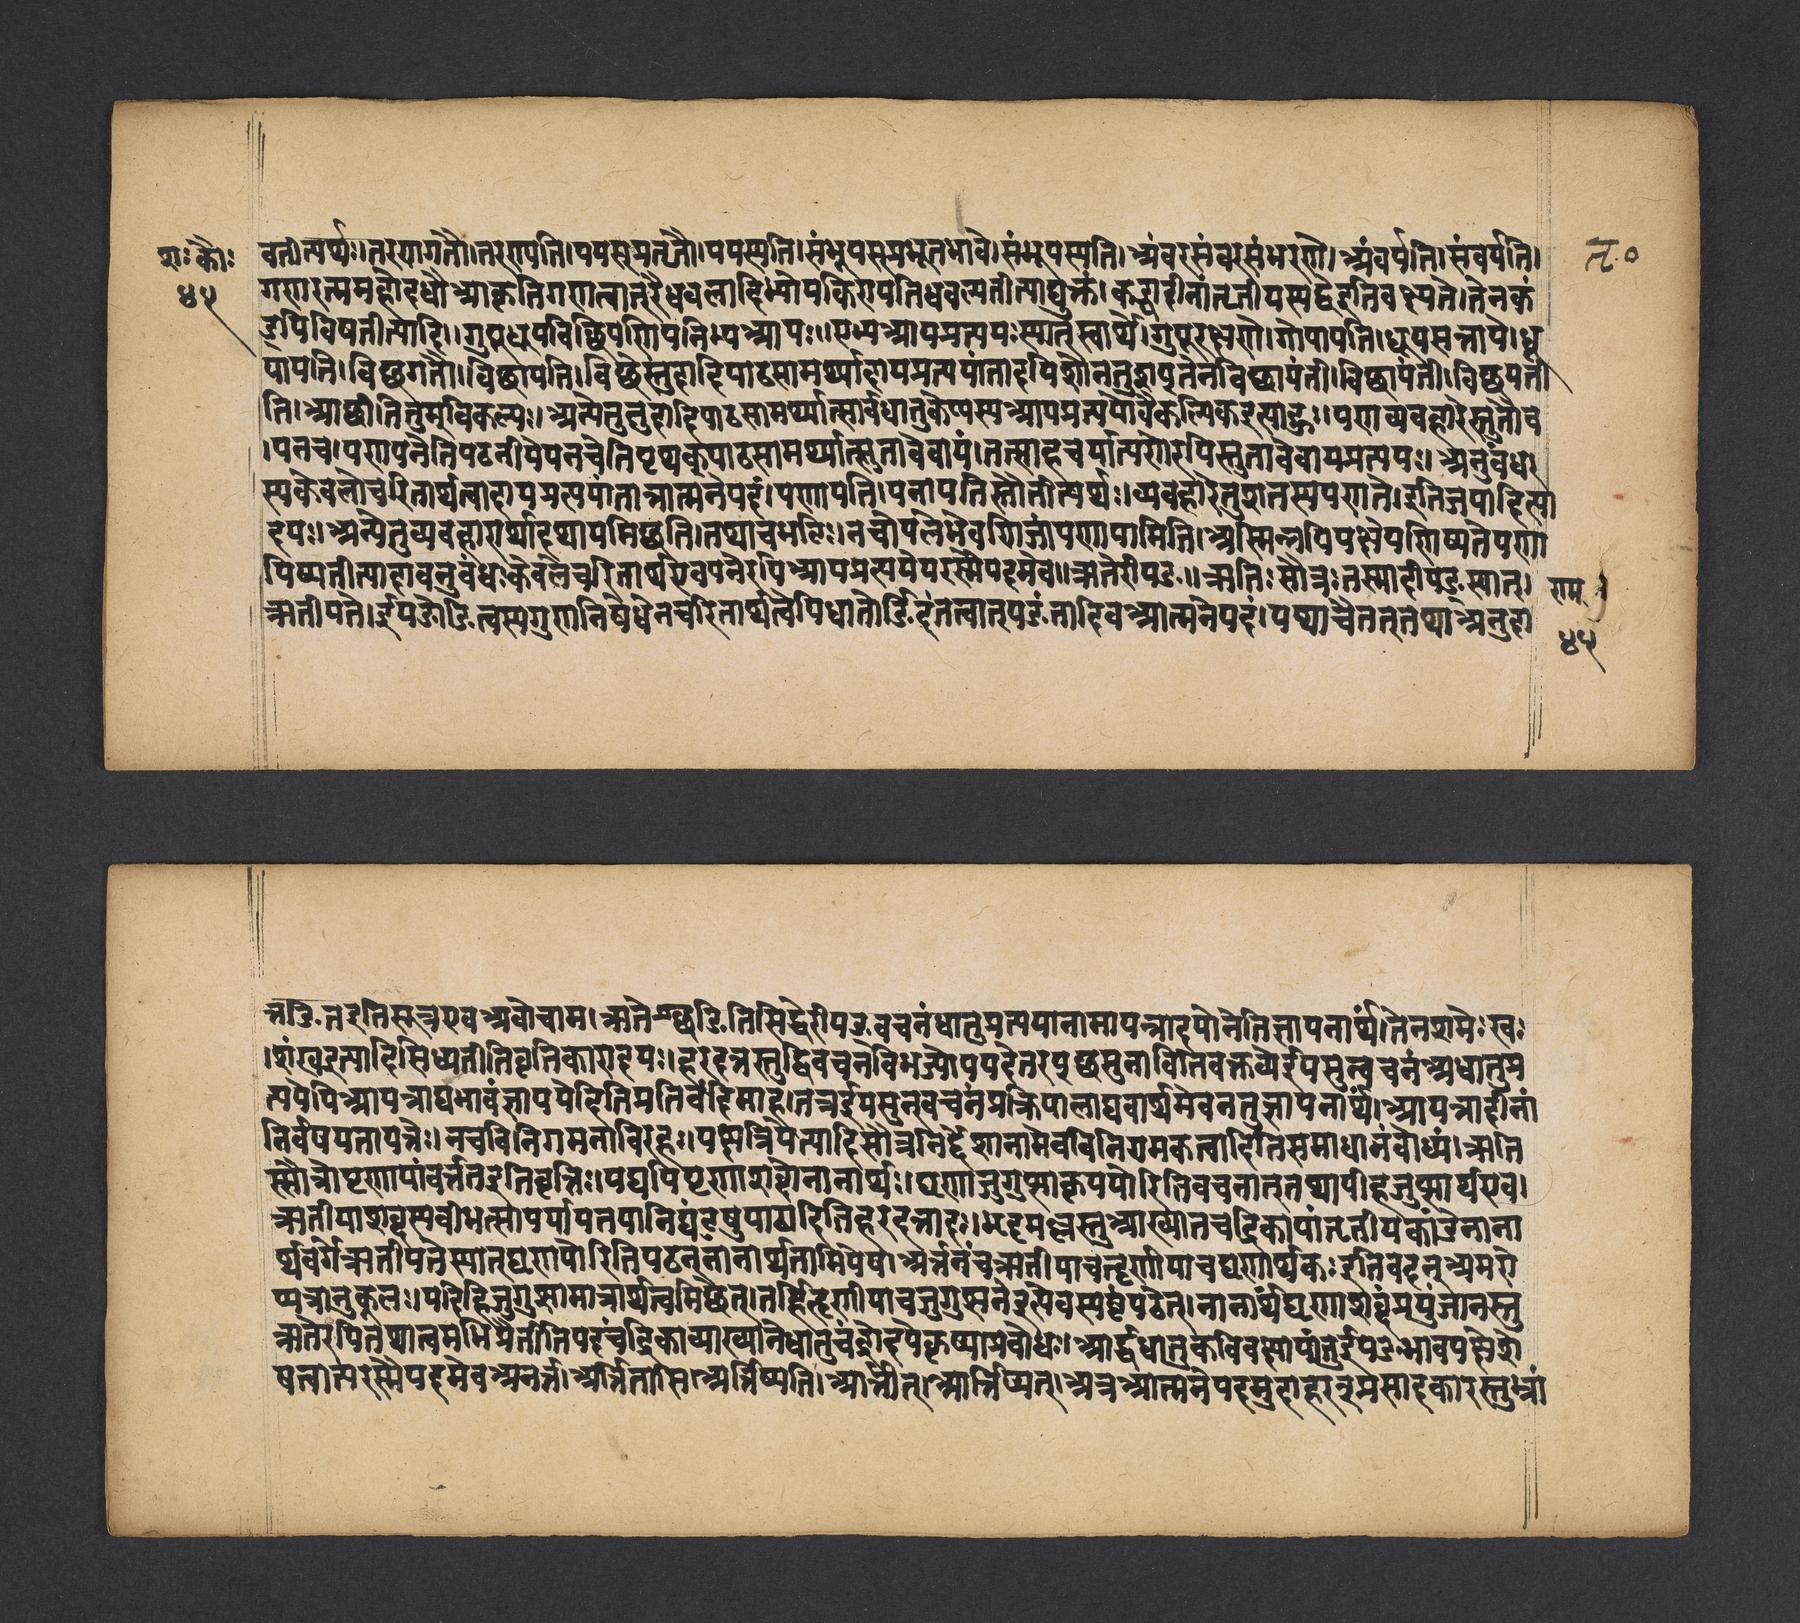 शः कौः
४५
वतीत्यर्थः। तरणगतौ। तरणयति। पयसप्रसृतौ। पयस्यति। संभूयसप्रभूतभावे। संभूयस्यति। अंवरसंवरसंभरणे। अंवर्यति। संवर्यति।
गणरत्नमहोदधौ आकृतिगणत्वात् धवलादिभ्योपकिणपतिधवल्यतीत्याद्युक्तं। कण्ड्वादीनां तृतीयस्यद्वेइतिवक्ष्यते। तेनकं
डूयियिषतीत्यादि॥ गुपूधूपविच्छिपणिपनिभ्य आयः॥ एभ्य आयप्रत्ययः स्यात् स्वार्थे। गुपूरक्षणे। गोपायति। धूपसन्तापे। धू
पायति। विच्छगतौ। विच्छायति। विच्छेस्तुदादिपाठसामर्थ्यादायप्रत्ययांतादपिशेनतुशप्तेनविच्छायंती। विच्छायती। विच्छयती
ति। आच्छीतिनुम्विकल्पः। अन्येतुतुदादिपाठसामर्थ्यात्सार्वधातुकेप्यस्य आयप्रत्ययोवैकल्पिकइत्याहुः। पणव्यवहारेस्तुतौच
। पनच। पणपनेतिपठनीयेपनचेतिपृथक्पाठसामर्थ्यात्स्तुतावेवायं। तत्साहचर्यात्पणेरपिस्तुतावेवायप्रत्ययः। अनुबंध
स्यकेवलेचरितार्थत्वादायप्रत्ययांतान्नात्मनेपदं। पणायति। पनायतिस्तौतीत्यर्थः। व्यवहारेतुशतस्यपणते। इतिजयादित्या
दयः। अन्येतुव्यवहारार्थादप्यायमिच्छति। तथाचभट्टिः। नचोपलेभेवणिजांपणायामिति। अस्मिन्नपिपक्षेपणिष्यतेपणा
यिष्यतीत्यादावनुबंधः केवलेचरितार्थएवपनेरपि आयप्रत्ययेपरस्मैपदमेव॥ ऋतेरीयङ्॥ ऋतिः सौत्रः तस्मादीयङ् स्यात्।
ऋतीयते। ईयङोङित्वस्यगुणनिषेधेनचरितार्थत्वेपिधातोर्ङिदंतत्वात् यङंतादिव आत्मनेपदं। यथाचैतत्तथा अनुदा
राम
४५
त्तङितइतिसूत्रएव अवोचाम। ऋतेश्छङितिसिद्धेरीयङ्वचनंधातुप्रत्ययानामायन्नादयोनेतिज्ञापनार्थं। तेनशमेः खः
। शंखइत्यादिसिध्यतीतिवृत्तिकारादयः। हरदत्तस्तुद्विवचनविभज्योपपदेतरपुच्छसुनावितिवक्तव्येईयसुन्वचनं अधातुप्र
त्ययेपि आयन्नाद्यभावंज्ञापयेदितिप्रतिवंदिमाह। तत्रईयसुन्वचनंप्रक्रियालाघवार्थमेवनतुज्ञापनार्थं। आयन्नादीनां
निर्विषयतापत्तेः। नचविनिगमनाविरहः। पक्षान्त्रियेत्यादिसौत्रनिर्द्देशानामेवविनिगमकत्वादितिसमाधानंबोध्यं। ऋति
स्सौत्रोघृणायांवर्त्ततइतिवृत्तिः। यद्यपिघृणाशब्दोनानार्थः। घृणाजुगुप्साकृपयोरितिवचनात् तथापीहजुगुप्सार्थएव।
ऋतीयाशब्दस्यबीभत्सापर्यायतयानिघंटुषुपाठादितिहरदत्तादयः। भट्टमल्लस्तु आख्यातचंद्रिकायांतृतीयकांडेनाना
र्थवर्गेऋतीयतेस्यात् घृणायोरितिपठन्नानार्थतामपिप्रेयेष। अर्त्तनंचऋतीयाचहृणीयाचघृणार्थकः इतिवदन् अमरो
प्यत्रानुकूलः। यदिहिजुगुप्सामात्रार्थत्वमिच्छेत्। तर्हिहृणीयाचजुगुप्सनेइत्येवस्पष्टंपठेत्। नानार्थंघृणाशब्दंप्रयुंजानस्तु
ऋतेरपितथात्वमभिप्रैतीतिपदचंद्रिकाव्याख्यानेधातुचंद्रोदयेकृष्णाग्रेबोधः। आर्द्धधातुकविवक्षायांतुईयङभावपक्षेशे
षत्वात्परस्मैपदमेव आनर्त। अर्तितासि। अर्तिष्यति। आर्तीत्। आर्तिष्यत्। अत्र आत्मनेपदमुदाहरन् प्रसादकारस्तुभ्रां